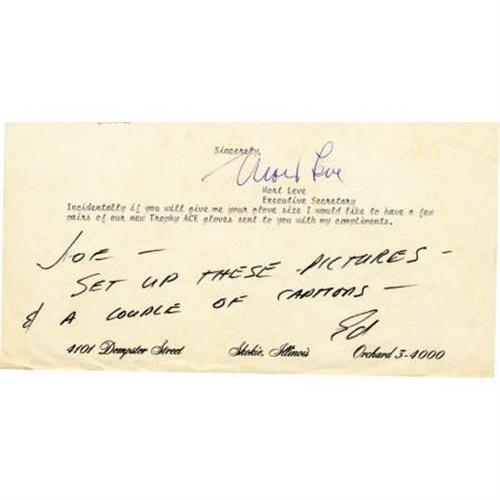 Sincerely,
Mort Leve
Mort Leve
Executive Secretary
Incidentally if you will give me your glove size I would like to have a few
pairs of our new Trophy ACE gloves sent to you with my compliments.
JOE —
SET UP THESE PICTURES —
& A COUPLE OF CAPTIONS —
Ed
4101 Dempster Street Skokie, Illinois Orchard 3-4000